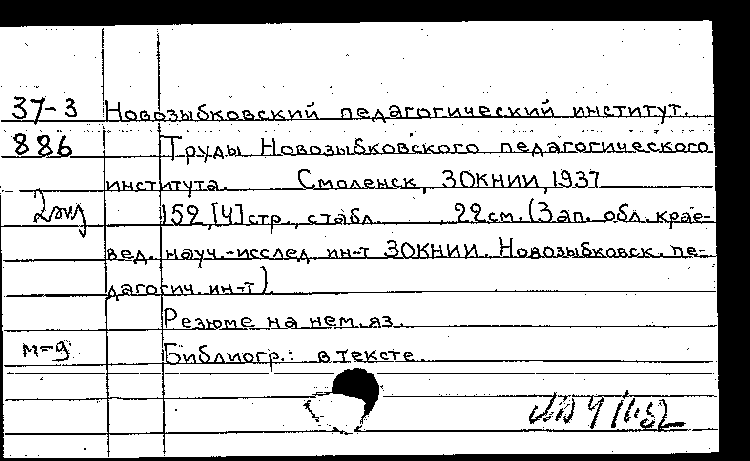 37-3 Новозыбковский педагогический институт.
886 Труды Новозыбковского педагогического
института. Смоленск, ЗОКНИИ, 1937
2экз 152, [4] стр., с табл. 22 см. (Зап. обл. крае-
вед. науч.-исслед. ин-т ЗОКНИИ. Новозыбковск. пе-
дагогич. ин-т).
Резюме на нем. яз.
м-д Библиогр.: в тексте.